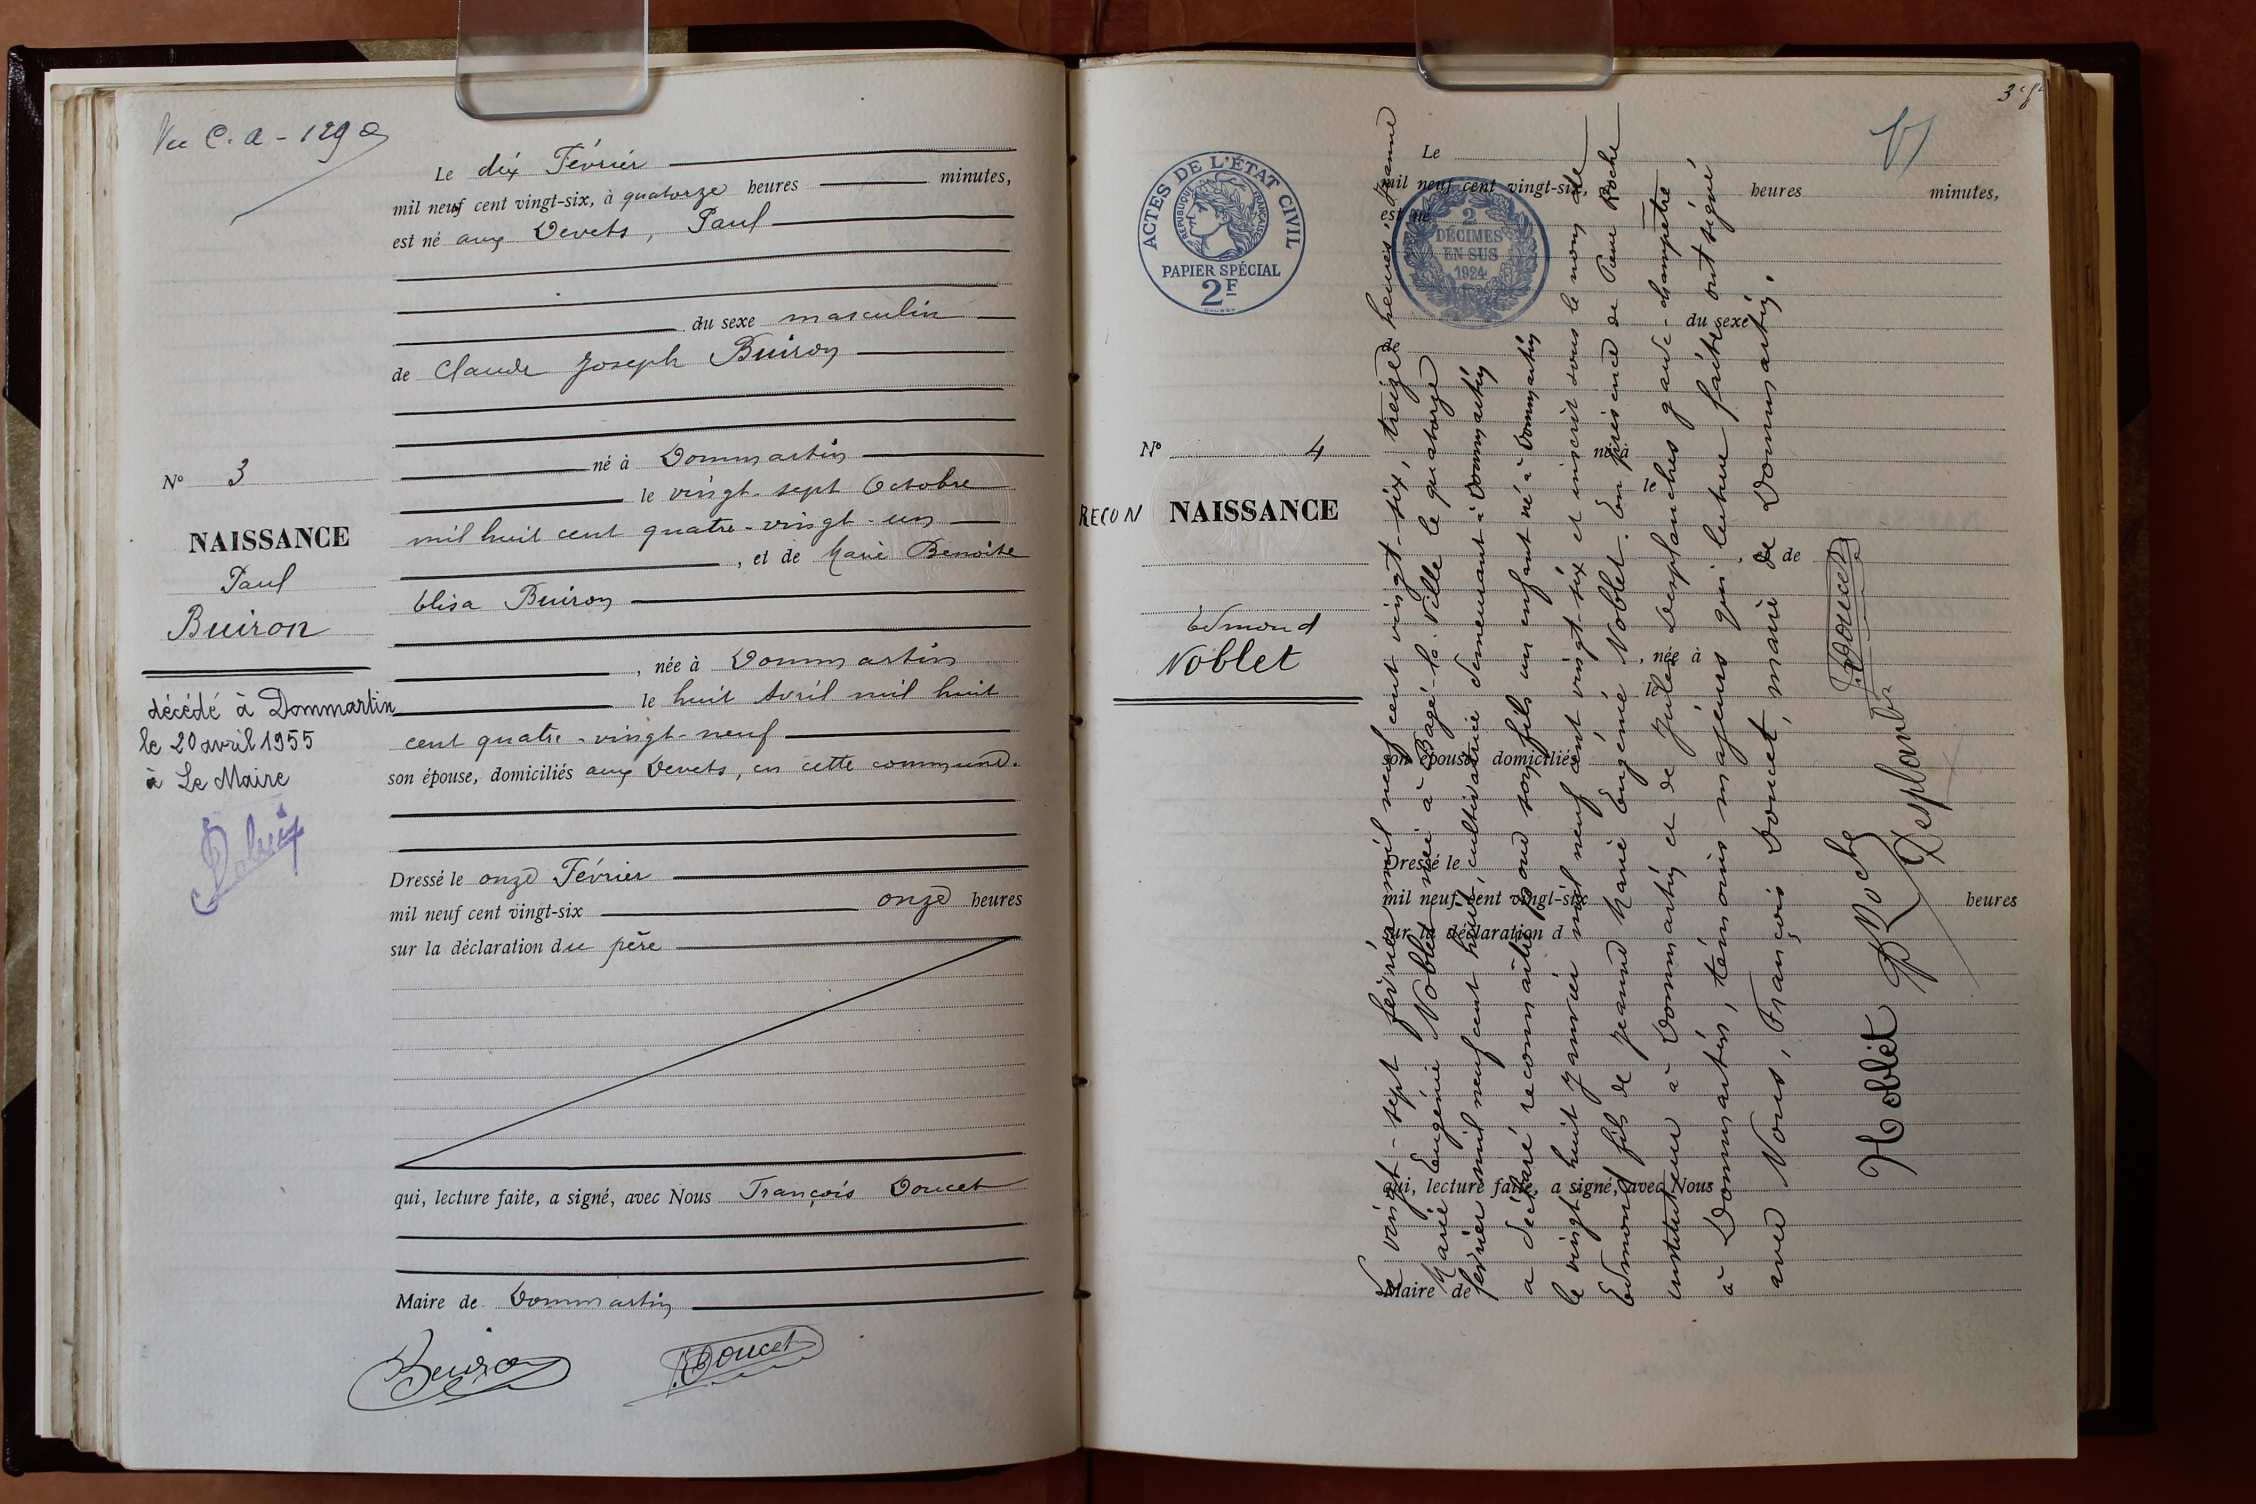 Vu C. a - 129 a
Le dix Février
mil neuf cent vingt-six, à quatorze heures minutes,
est né aux Devets, Paul
du sexe masculin
de Claude Joseph Buiron
né à Dommartin
le vingt-sept Octobre
mil huit cent quatre-vingt-un
, et de Marie Benoite
Elisa Buiron
, née à Dommartin
le huit Avril mil huit
cent quatre-vingt-neuf
son épouse, domiciliés aux Devets, en cette commune.
Dressé le onze Février
mil neuf cent vingt-six onze heures
sur la déclaration du père
qui, lecture faite, a signé, avec Nous François Doucet
Maire de Dommartin
Buiron
F. Doucet
N° 3
NAISSANCE
Paul
Buiron
décédé à Dommartin
le 20 avril 1955
à Le Maire
ACTES DE L'ÉTAT CIVIL
RÉPUBLIQUE FRANÇAISE
PAPIER SPÉCIAL
2F
2
DÉCIMES
EN SUS
1924
N° 4
RECON NAISSANCE
Edmond
Noblet
Le
mil neuf cent vingt-six, heures minutes,
est né
du sexe
de
né à
le
, et de
, née à
le
son épouse, domiciliés
Dressé le
mil neuf cent vingt-six heures
sur la déclaration d
qui, lecture faite, a signé, avec Nous
Maire de
Le vingt-sept février mil neuf cent vingt-six, treize heures, Jeanne
Marie Eugénie Noblet née à Bagé-la-Ville le quatorze
février mil neuf cent huit, cultivatrice demeurant à Dommartin
a déclaré reconnaître pour son fils un enfant né à Dommartin
le vingt huit janvier mil neuf cent vingt-six et inscrit sous le nom de
Edmond fils de Jeanne Marie Eugénie Noblet. En présence de Pierre Roche
instituteur à Dommartin et de Jules Desplanches garde-champêtre
à Dommartin, témoins majeurs qui lecture faite ont signé
avec Nous, François Doucet, maire de Dommartin.
Noblet
P Roche
Desplanches
F. Doucet